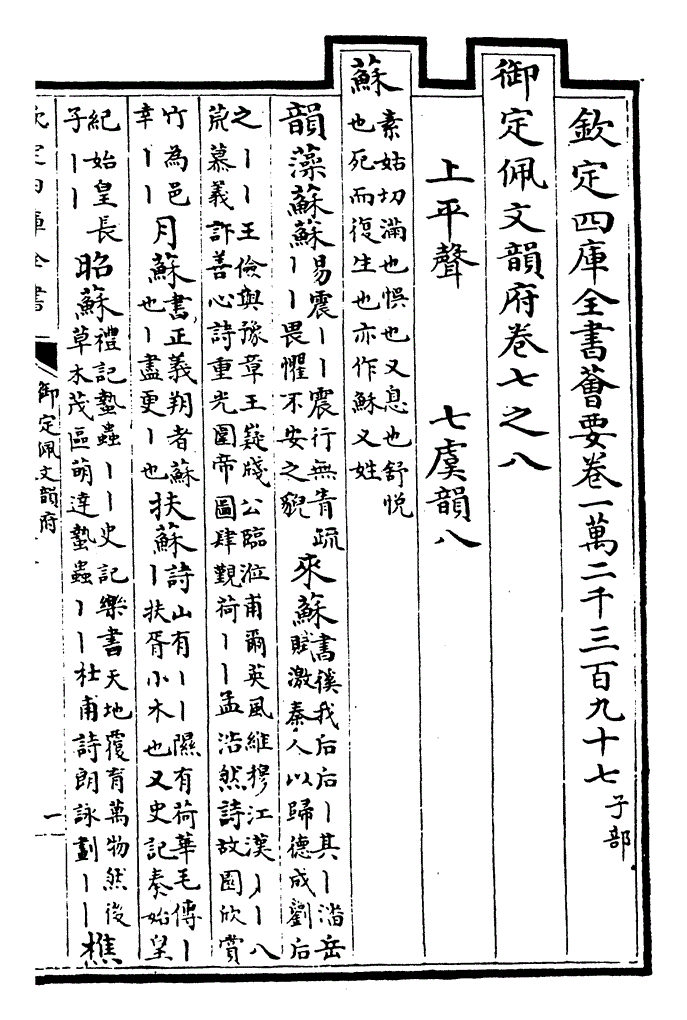 欽定四庫全書薈要卷一萬二千三百九十七 子部
御定佩文韻府卷七之八
上平聲 七虞韻八
蘇
素姑切滿也悞也又息也舒悦
也死而復生也亦作穌又姓
韻藻蘇蘇
易震丨丨震行無眚疏
丨丨畏懼不安之貌
來蘇
書徯我后后丨其丨潘岳
賦激秦人以歸德成劉后
之丨丨王儉與豫章王嶷牋公臨涖甫爾英風維穆江漢丨丨八
荒慕義許善心詩重光圖帝圖肆覲荷丨丨孟浩然詩故園欣賞
竹為邑
幸丨丨
月蘇
書正義朔者蘇
也丨盡更丨也
扶蘇
詩山有丨丨隰有荷華毛傳丨
丨扶胥小木也又史記秦始皇
紀始皇長
子丨丨
昭蘇
禮記蟄蟲丨丨史記樂書天地覆育萬物然後
草木茂區萌達蟄蟲丨丨杜甫詩朗詠劃丨丨
樵
欽定四庫全書
御定佩文韻府
一